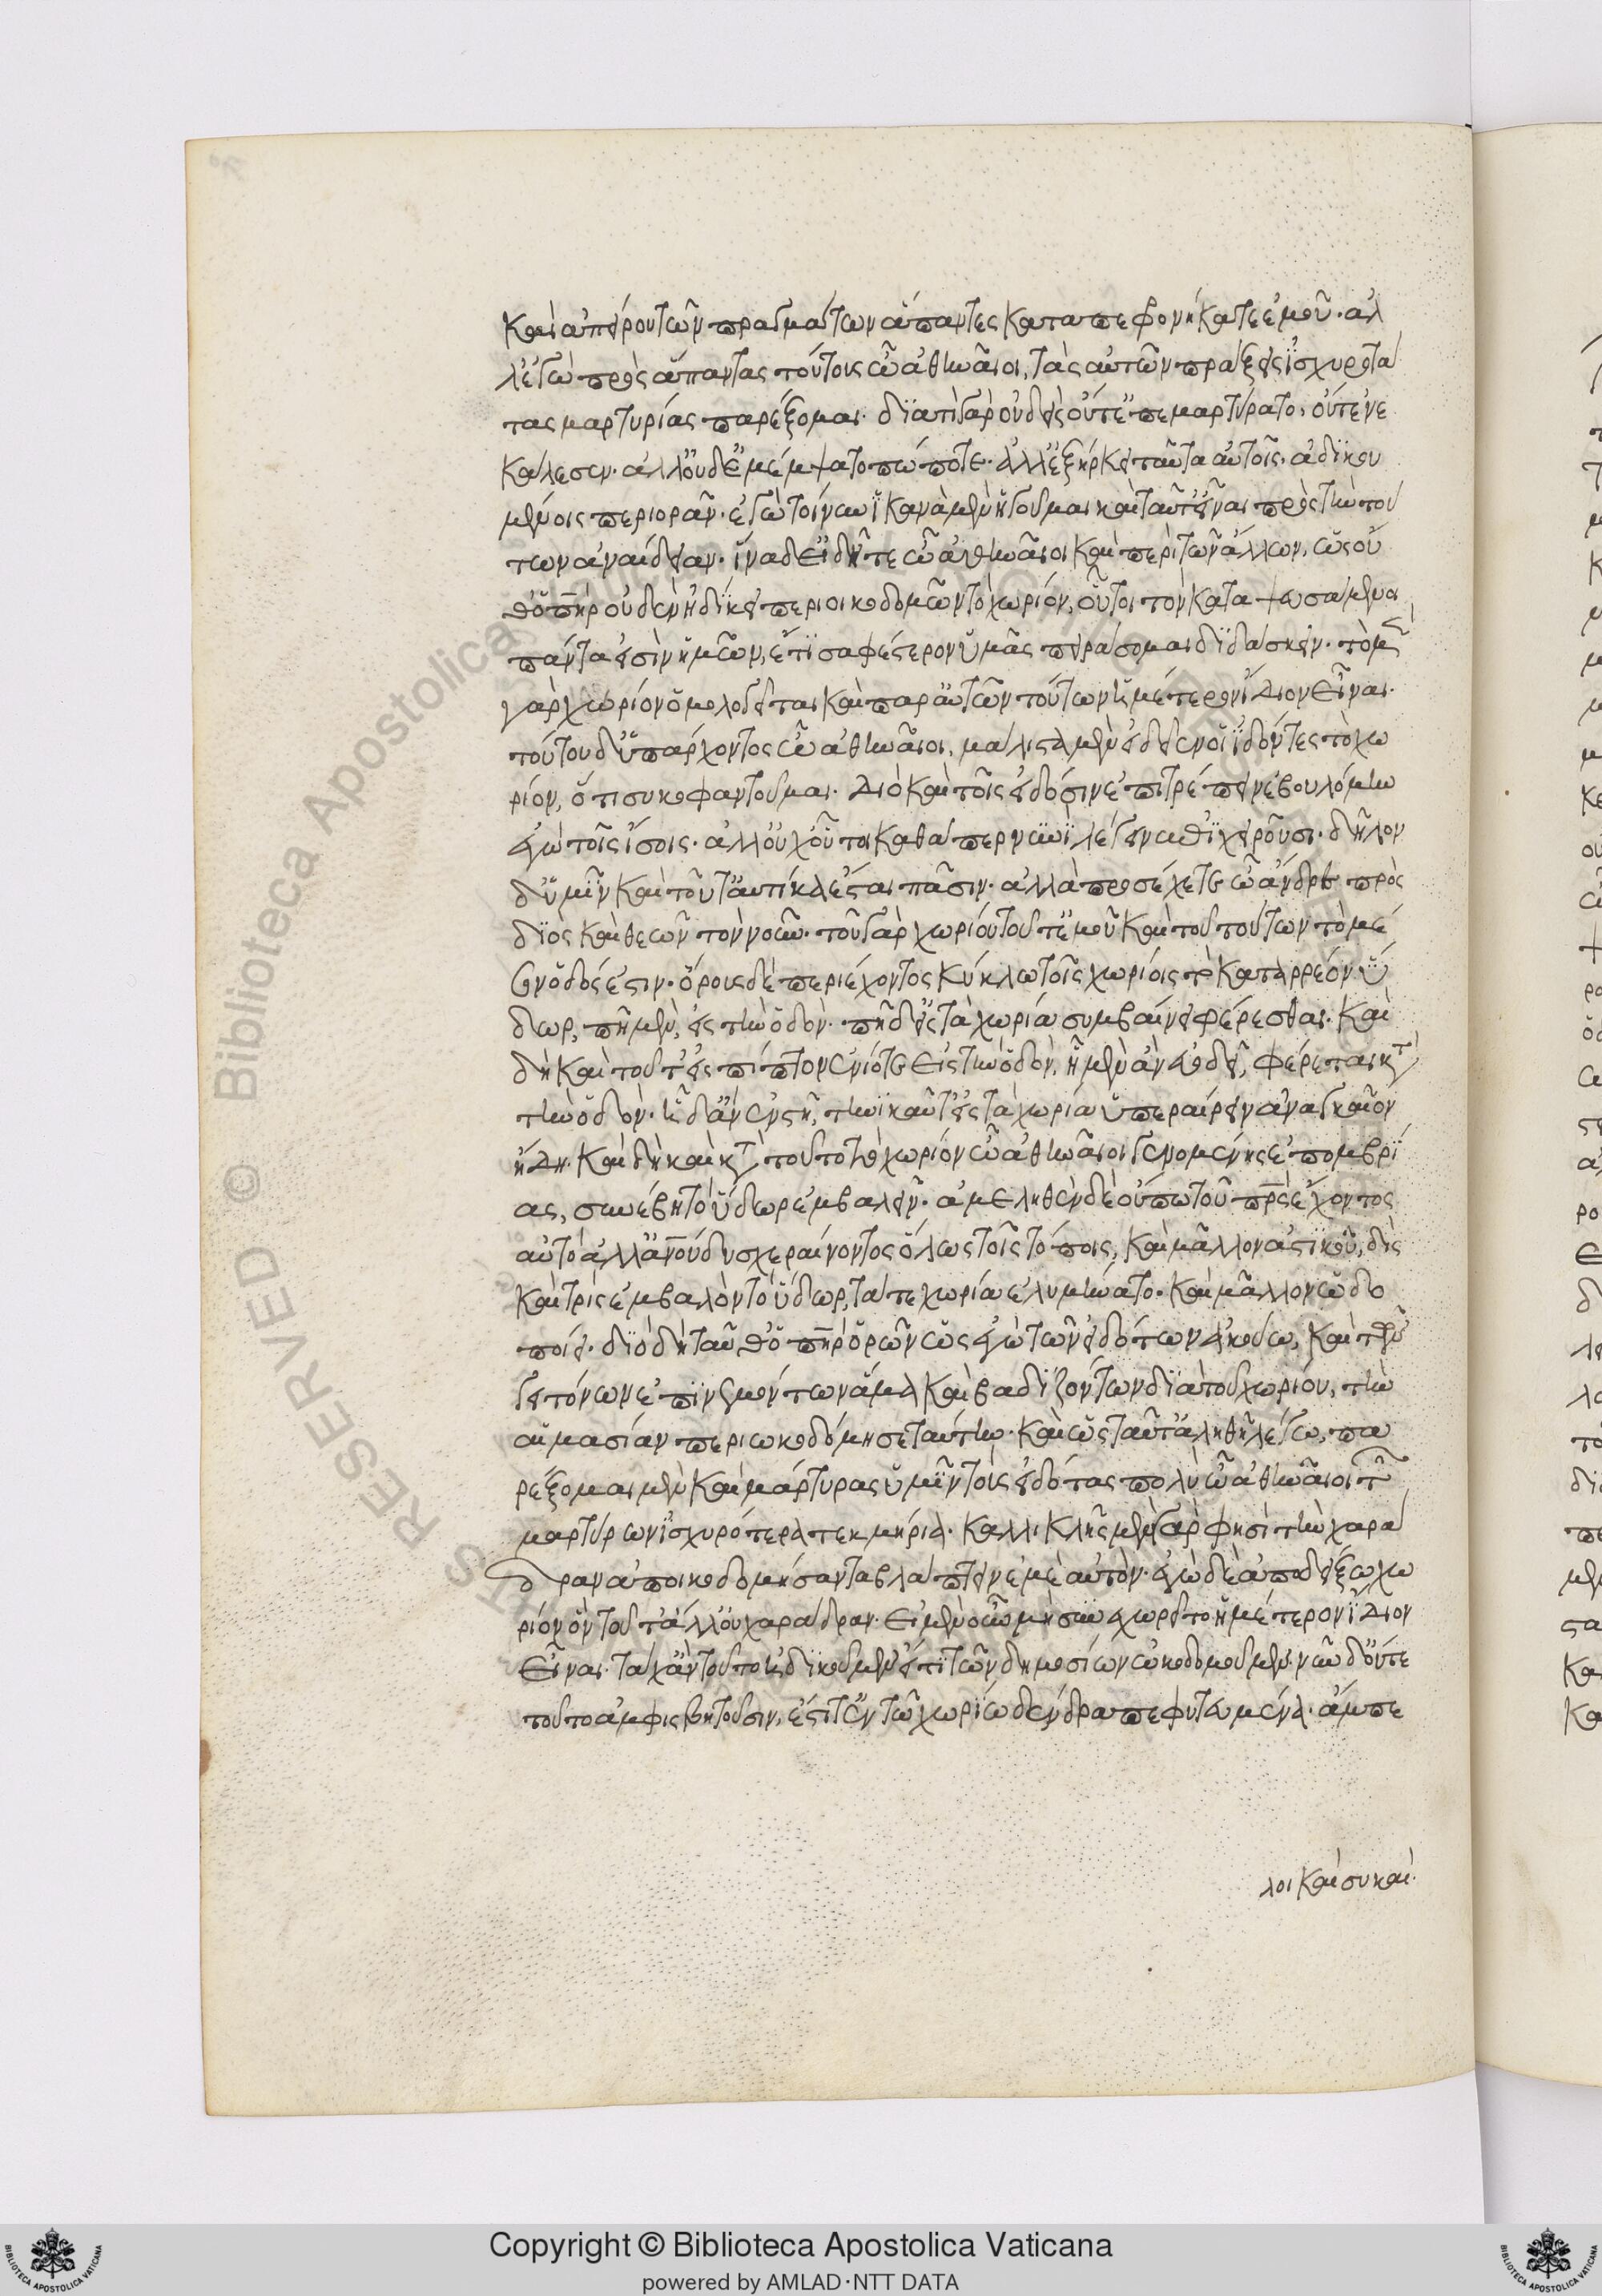 καὶ ἀπείρου τῶν πραγμάτων ἅπαντες καταπεφρονήκατε ἐμοῦ· ἀλ
λ' ἐγὼ πρὸς ἅπαντας τούτους ὦ ἀθηναῖοι, τὰς αὐτῶν πράξεις ἰσχυροτά
τας μαρτυρίας παρέξομαι· διατί γὰρ οὐδεὶς οὔτ' ἐπεμαρτύρατο, οὔτ' ἐνε
κάλεσεν· ἀλλ' οὐδ' ἐμέμψατο πώποτε· ἀλλ' ἐξήρκει ταῦτα αὐτοῖς· ἀδικου
μένοις περιορᾶν· ἐγὼ τοίνυν ἱκανὰ μὲν ἡγοῦμαι καὶ ταῦτ' εἶναι πρὸς τὴν τού
των ἀναίδειαν· ἵνα δ' εἰδῆτε ὦ ἀθηναῖοι καὶ περὶ τῶν ἄλλων, ὡς οὔ
θ' ὁ πὴρ οὐδὲν ἠδίκει περιοικοδομῶν τὸ χωρίον, οὗτοί τον κατεψευσμένοι
πάντα εἰσὶν ἡμῶν, ἔτι σαφέστερον ὑμᾶς πειράσομαι διδάσκειν· τὸ μὲν
γὰρ χωρίον ὁμολογεῖται καὶ παρ' αὐτῶν τούτων ἡμέτερον ἴδιον εἶναι·
τούτου δ' ὑπάρχοντος ὦ ἀθηναῖοι, μάλιστα μὲν εἰδεῖεν οἱ ἰδόντες τὸ χω
ρίον, ὅτι συκοφαντοῦμαι· διὸ καὶ τοῖς εἰδόσιν ἐπιτρέπειν ἐβουλόμην
ἐγὼ τοῖς ἴσοις· ἀλλ' οὐχ οὗτοι καθάπερ νυνὶ λέγειν ἐπιχειροῦσι· δῆλον
δ' ὑμῖν καὶ τοῦτ' αὐτίκα ἔσται πᾶσιν· ἀλλὰ προσέχετε ὦ ἄνδρες πρὸς
διὸς καὶ θεῶν τὸν νοῦν· τοῦ γὰρ χωρίου τοῦ τ' ἐμοῦ καὶ τοῦ τούτων τὸ μέ
σον ὁδός ἐστιν· ὄρους δὲ περιέχοντος κύκλω τοῖς χωρίοις τὸ καταρρέον ὕ
δωρ, τῇ μὲν, εἰς τὴν ὁδὸν· τῇ δ' εἰς τὰ χωρία συμβαίνει φέρεσθαι· καὶ
δὴ καὶ τοῦτ' εἰσπίπτον ἐνίοτε εἰς τὴν ὁδὸν, ᾗ μὲν ἂν εὐοδῇ, φέρεται κτ
τὴν ὁδὸν· ᾗ δ' ἂν ἐνστῇ, τηνικαῦτ' εἰς τὰ χωρία ὑπεραίρειν ἀναγκαῖον
ἤδη· καὶ δὴ καὶ κτ τοῦτο τὸ χωρίον ὦ ἀθηναῖοι γενομένης ἐπομβρί
ας, συνέβη τὸ ὕδωρ ἐμβαλεῖν· ἀμεληθὲν δὲ οὔπω τοῦ πρς ἔχοντος
αὐτὸ ἀλλ' ἀνοῦ δυσχεραίνοντος ὅλως τοῖς τόποις, καὶ μᾶλλον ἀστικοῦ, δὶς
καὶ τρὶς ἐμβαλὸν τὸ ὕδωρ, τά τε χωρία ἐλυμήνατο· καὶ μᾶλλον ὡδο
ποίει· διὸ δὴ ταῦθ' ὁ πὴρ ὁρῶν ὡς ἐγὼ τῶν εἰδότων ἀκούω, καὶ τῶν
γειτόνων ἐπινεμόντων ἅμα καὶ βαδιζόντων διὰ τοῦ χωρίου, τὴν
αἱμασίαν περιωκοδόμησε ταύτην· καὶ ὡς ταῦτ' ἀληθῆ λέγω, πα
ρέξομαι μὲν καὶ μάρτυρας ὑμῖν τοὺς εἰδότας πολὺ ὦ ἀθηναῖοι τῶν
μαρτύρων ἰσχυρότερα τεκμήρια· καλλικλῆς μὲν γὰρ φησὶ τὴν χαρά
δραν ἀποικοδομήσαντα βλάπτειν ἐμὲ αὐτὸν· ἐγὼ δὲ ἀποδείξω χω
ρίον ὂν τοῦτ' ἀλλ' οὐ χαράδραν· εἰ μὲν οὖν μὴ συνεχωρεῖτο ἡμέτερον ἴδιον
εἶναι· τάχ' ἂν τοῦτο ἠδικοῦμεν, εἴ τι τῶν δημοσίων ὠκοδομοῦμεν· νῦν δ' οὔτε
τοῦτο ἀμφισβητοῦσιν, ἔστι τ' ἐν τῷ χωρίω δένδρα πεφυτευμένα· ἄμπε
λοι καὶ συκαῖ·
RESERVED © Biblioteca Apostolica
Copyright © Biblioteca Apostolica Vaticana
powered by AMLAD·NTT DATA